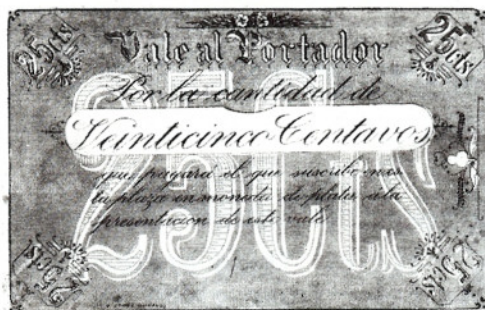 25cts 25cts
Vale al Portador
Por la cantidad de
Veinticinco Centavos
que pagará el que suscribe en
la plaza en moneda de plata, a la
presentacion de este vale
25Cts
25cts 25cts